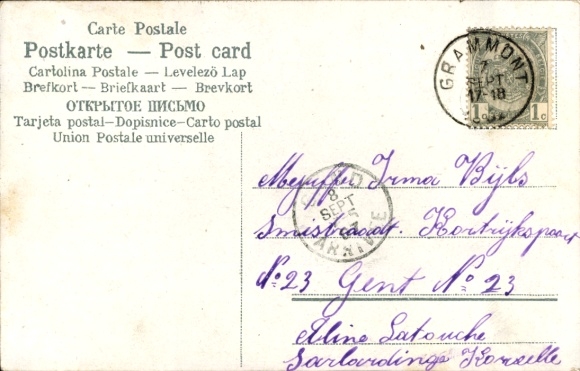 Carte Postale
Postkarte — Post card
Cartolina Postale — Levelező Lap
Brefkort — Briefkaart — Brevkort
ОТКРЫТОЕ ПИСЬМО
Tarjeta postal—Dopisnice—Carto postal
Union Postale universelle
GRAMMONT
7
SEPT
17-18
1c 1c
8
SEPT
ARRIVÉE
Mejuffe Irma Bijls
Smisstraadt. Kortrijkspoort
No 23 Gent No 23
Aline Latouche
Sarlardinge